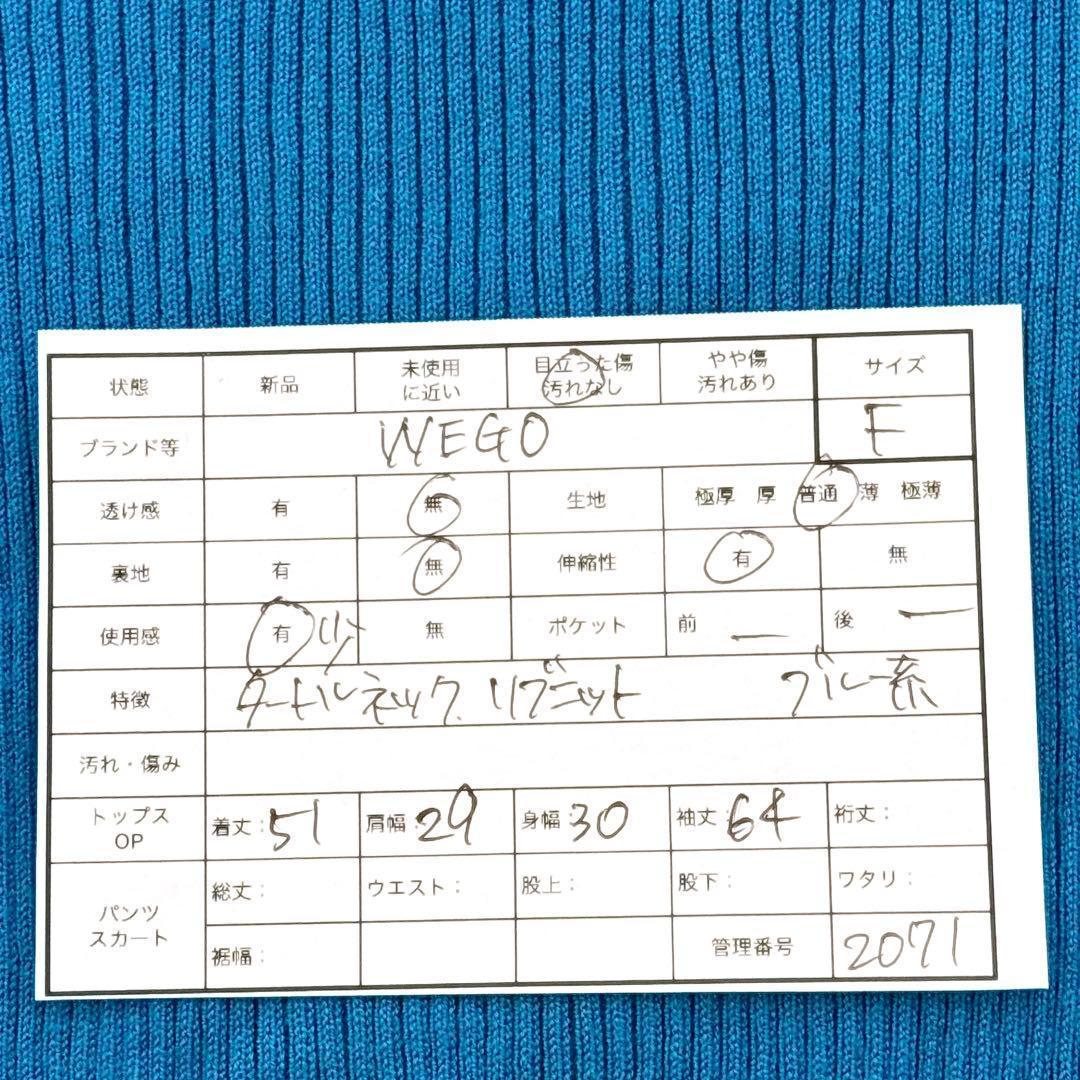 状態 新品 未使用に近い 目立った傷汚れなし やや傷汚れあり サイズ
ブランド等 WEGO F
透け感 有 無 生地 極厚 厚 普通 薄 極薄
裏地 有 無 伸縮性 有 無
使用感 有 (少) 無 ポケット 前 — 後 —
特徴 タートルネック リブニット ブルー系
汚れ・傷み
トップス OP 着丈:51 肩幅:29 身幅:30 袖丈:64 裄丈:
パンツ スカート 総丈: ウエスト: 股上: 股下: ワタリ:
裾幅: 管理番号 2071